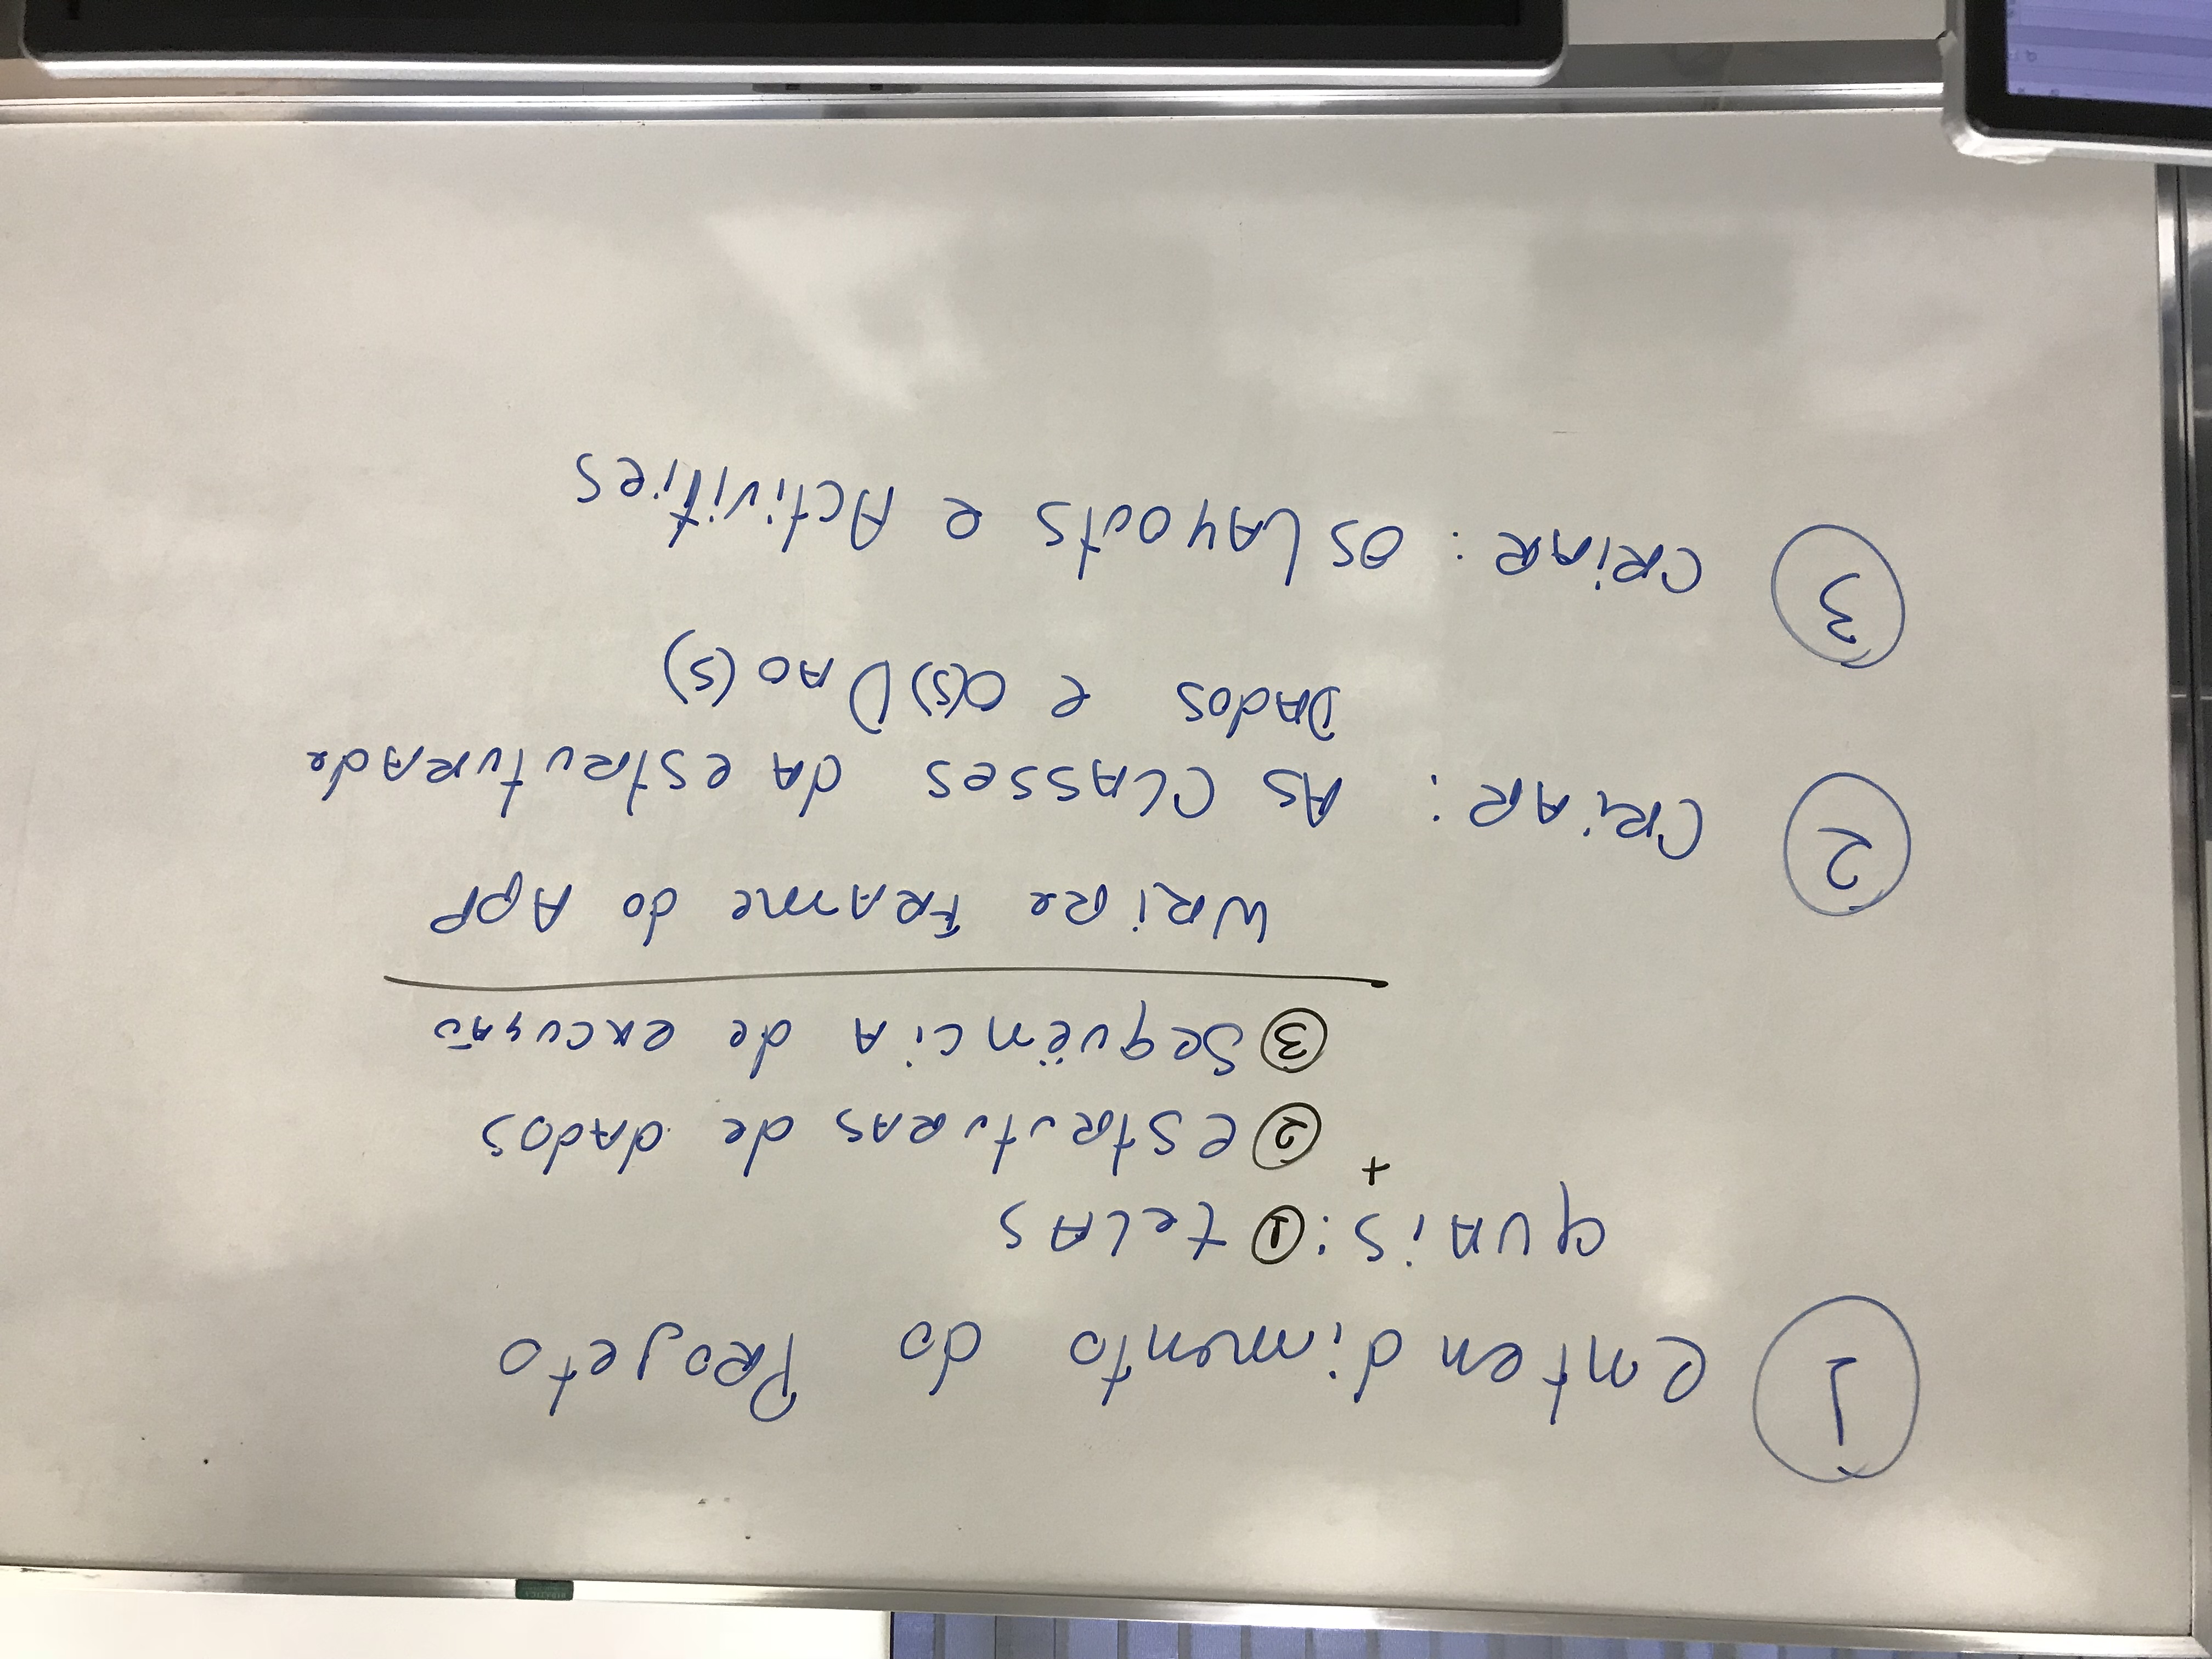 1 entendimento do Projeto
quais: 1 telas
+ 2 estruturas de dados
3 Sequëncia de excução
Wrire Frame do App
2 Criar: As Classes da estruturade
Dados e o(s) Dao(s)
3 Criar: os Layouts e Activities